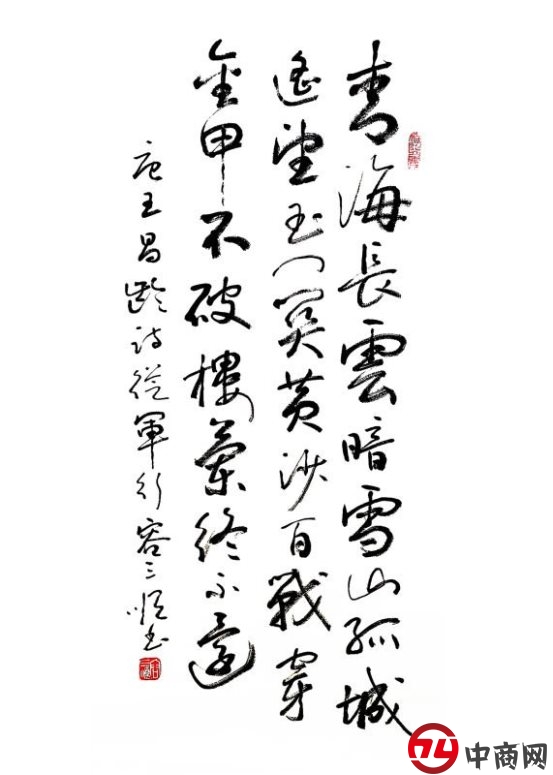 青海長雲暗雪山孤城
遙望玉门関黄沙百戰穿
金甲不破樓蘭終不還
唐王昌齡诗從軍行容三顺书
中商网